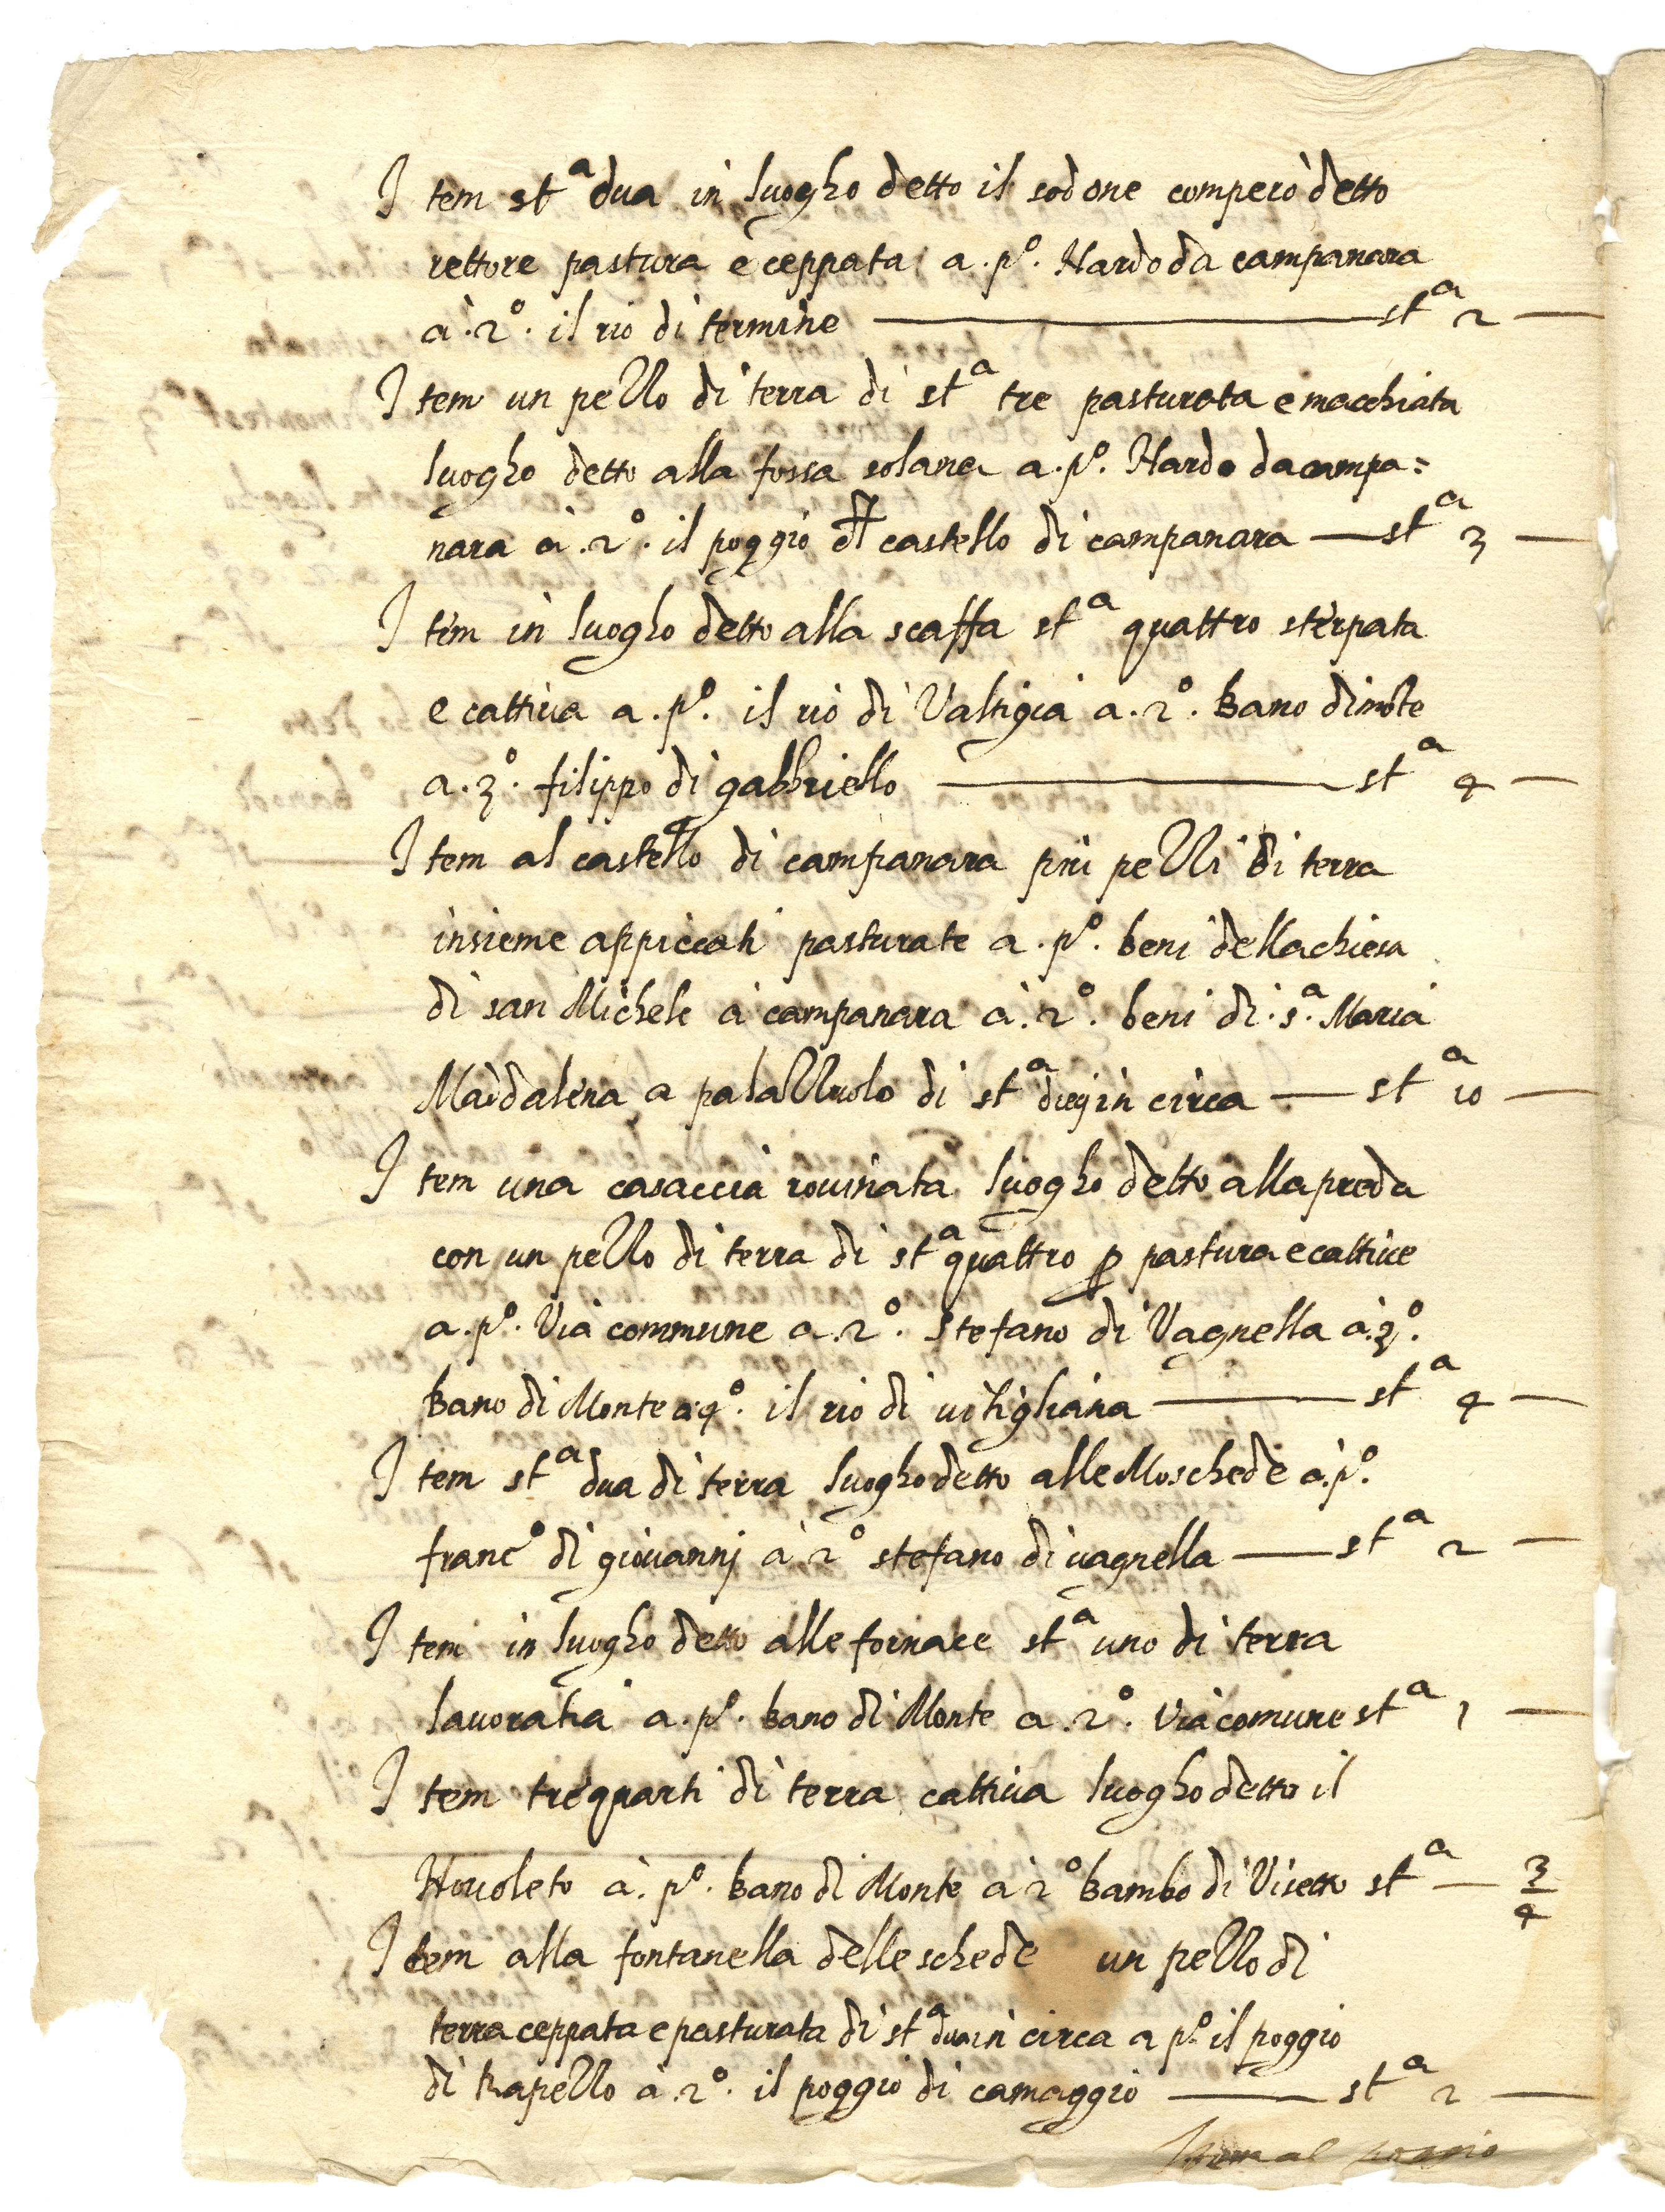 Item st.a dua in luogho detto il sodone comperò detto
rettore pastura e ceppata a.po. Nardo da campanara
à.2o. il rio di termine — st.a 2 —
Item un pezzo di terra di st.a tre pasturata e macchiata
luogho detto alla fossa solana a.po. Nardo da campa=
nara à.2o. il poggio dl castello di campanara — st.a 3 —
Item in luogho detto alla scaffa st.a quattro sterpata
e cattiua a.po. il rio di Valtigia a.2o. Bano di mōte
a.3o. filippo di gabbriello — st.a 4 —
Item al castello di campanara più pezzi di terra
insieme appiccati pasturate a.po. beni della chiesa
di san Michele a campanara à.2o. beni di.s.a Maria
Maddalena a palazzuolo di st.a dieij in circa — st.a 10 —
Item una casaccia rouinata luogho detto alla preda
con un pezzo di terra di st.a quattro p pastura e cattiue
a.po. Via commune a.2o. Stefano di Vagnella à.3o.
Bano di Monte a.4o. il rio di uitigliana — st.a 4 —
Item st.a dua di terra luogho detto alle Moschede à.po.
franc.o di giouannj à 2o stefano di uagnella — st.a 2 —
Item in luogho detto alle fornace st.a uno di terra
lauoratia a.po. Bano di Monte a.2o. Via comune st.a 1 —
Item tre quarti di terra cattiua luogho detto il
Nouoleto à.po. Bano di Monte à 2o Bambo di Visetto st.a — 3/4
Item alla fontanella delle schede un pezzo di
terra ceppata e pasturata di st.a dua in circa a po. il poggio
di trapezzo à.2o. il poggio di camaggio — st.a 2 —
Item al poggio